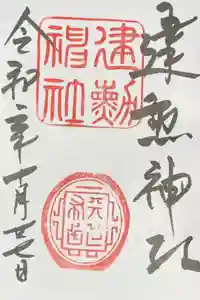 建勲神社
建勲
神社
令和元年十月廿七日